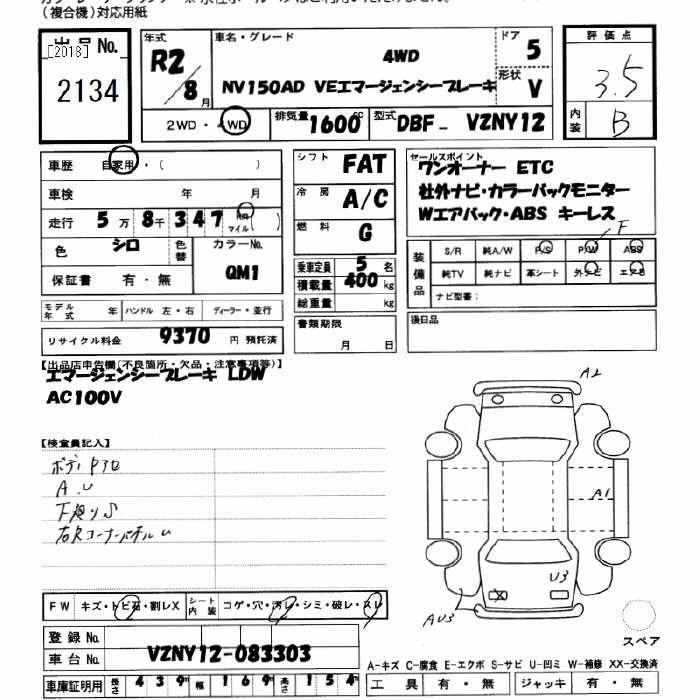 (複合機)対応用紙
出品 No.
[2018]
2134
年式
R2/8月
車名・グレード
4WD
NV150AD VEエマージェンシーブレーキ
ドア 5
形状 V
評価点
3.5
内装 B
2WD・4WD
排気量 1600 cc
型式 DBF- VZNY12
車歴 自家用・( )
車検 年 月
走行 5万 8千 347 Km マイル ( )
色 シロ 色替 カラーNo.
QM1
保証書 有・無
シフト FAT
冷房 A/C
燃料 G
乗車定員 5名
積載量 400 kg
総重量 kg
セールスポイント
ワンオーナー ETC
社外ナビ・カラーバックモニター
Wエアバック・ABS キーレス
F
装備品
S/R 純A/W P/S P/W ABS
純TV 純ナビ 革シート 外ナビ エアB
ナビ型番:
モデル年式 年 ハンドル 左・右 ディーラー・並行
リサイクル料金 9370 円 預託済
書類期限
月 日
後日品
【出品店申告欄(不良箇所・欠品・注意事項等)】
エマージェンシーブレーキ LDW
AC100V
【検査員記入】
A.U
下廻りS
右RコーナーパネルU
A2
A1
U3
AU3
スペア
FW キズ・トビ石・割レX
シート内装 コゲ・穴・汚レ・シミ・破レ・スレ
登録 No.
車台 No. VZNY12-083303
車庫証明用 長さ 439 幅 169 高さ 154
A-キズ C-腐食 E-エクボ S-サビ U-凹ミ W-補修 XX-交換済
工具 有・無 ジャッキ 有・無